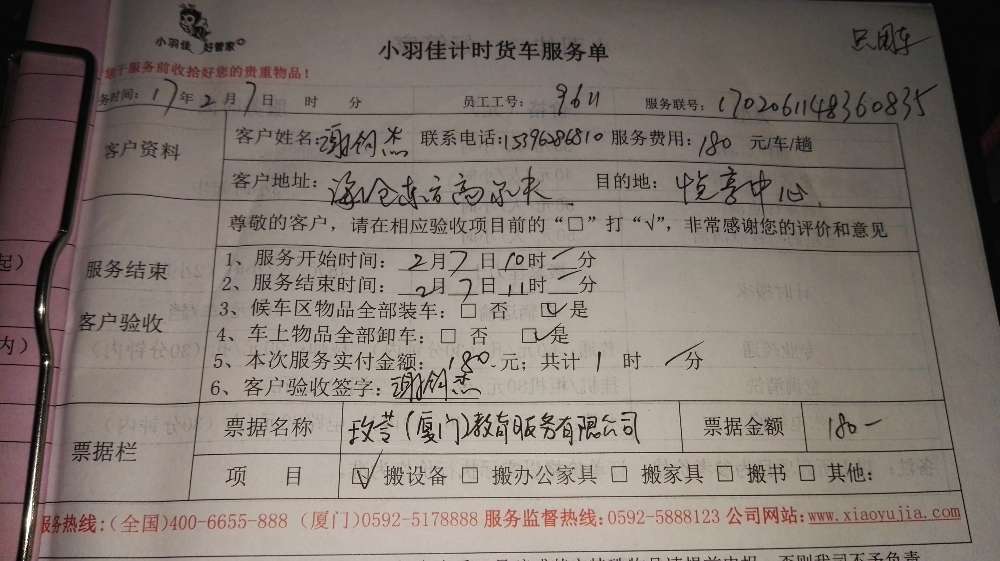 小羽佳 好管家
小羽佳计时货车服务单
只用车
于服务前收拾好您的贵重物品!
务时间: 17年2月7日 时 分 员工工号: 9611 服务联号: 1702061148360835
客户资料
客户姓名: 谢剑杰 联系电话: 15396286810 服务费用: 180 元/车/趟
客户地址: 海沧东方高尔夫 目的地: 悦享中心
尊敬的客户，请在相应验收项目前的“□”打“√”，非常感谢您的评价和意见
服务结束
客户验收
1、服务开始时间: 2月7日10时/分
2、服务结束时间: 2月7日11时/分
3、候车区物品全部装车: □ 否 ☑是
4、车上物品全部卸车: □ 否 ☑是
5、本次服务实付金额: 180 元; 共计 1 时 /分
6、客户验收签字: 谢剑杰
票据栏
票据名称 玫苓(厦门)教育服务有限公司 票据金额 180-
项 目 ☑ 搬设备 □ 搬办公家具 □ 搬家具 □ 搬书 □ 其他:
服务热线: (全国)400-6655-888 (厦门)0592-5178888 服务监督热线: 0592-5888123 公司网站: www.xiaoyujia.com
起)
内)